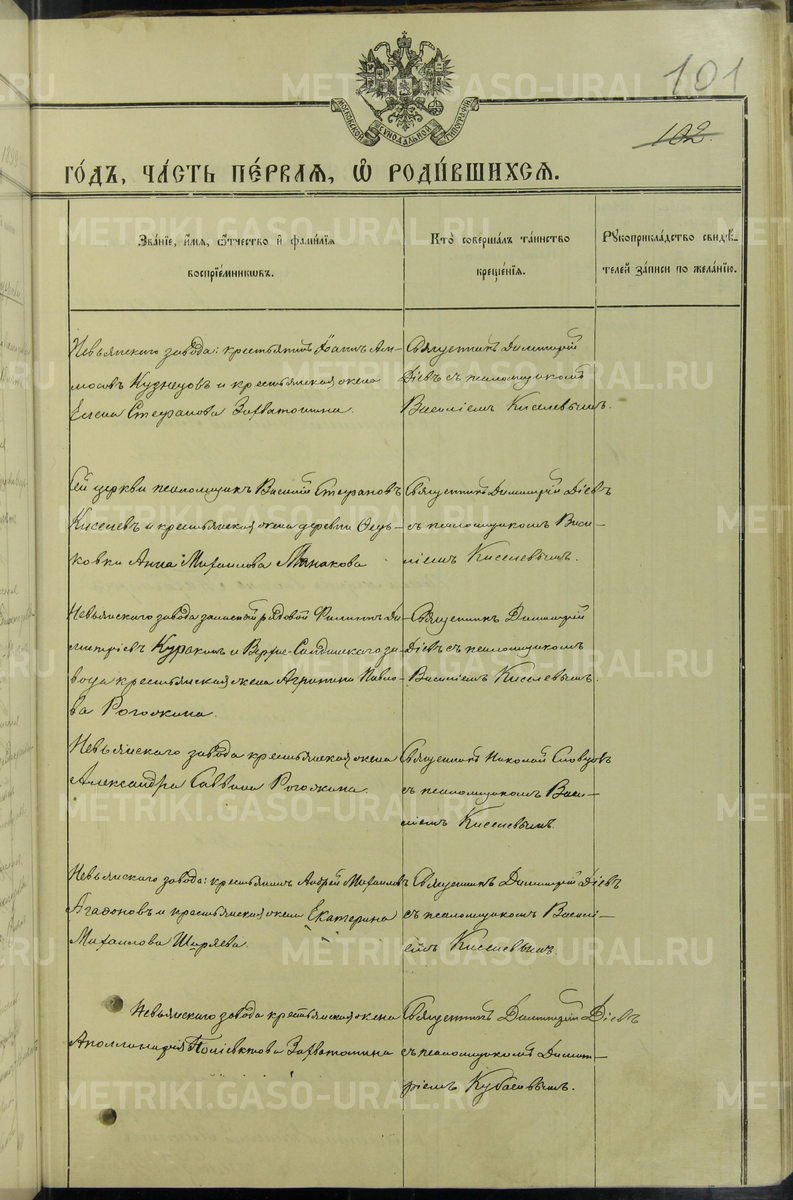 101
102.
МОСКОВСКОЙ СѴНОДАЛЬНОЙ ТИПОГРАФІИ
ГО́ДЪ, ЧА́СТЬ ПЕ́РВАЯ, Ѡ҆ РОДИ́ВШИХСЯ.
Зва́нїе, и҆́мя, ѻ҆́тчество и҆ фами́лїя
воспрїе́мниковъ.
Кто̀ соверша́лъ та́инство
креще́нїя.
Рꙋкоприкла́дство свидѣ́-
телей за́писи по жела́нїю.
Невьянскаго завода: крестьянинъ Іоаннъ Ам-
мосовъ Кузнецовъ и крестьянская жена
Елена Стефанова Захватошина.
Священникъ Димитрій
Діевъ съ псаломщикомъ
Василіемъ Киселевымъ.
Сей церкви псаломщикъ Василій Стефановъ
Киселевъ и крестьянская жена деревни Ѳедь-
ковки Анна Михаилова Манакова
Священникъ Димитрій Діевъ
съ псаломщикомъ Васи-
ліемъ Киселевымъ.
Невьянскаго завода запасной рядовой Филиппъ Ди-
митріевъ Куракинъ и Верхне-Салдинскаго за-
вода крестьянская жена Агрипина Павло-
ва Рогожина.
Священникъ Димитрій
Діевъ съ псаломщикомъ
Василіемъ Киселевымъ.
Невьянскаго завода крестьянская жена
Александра Саввина Рогожина.
Священникъ Николай Словцовъ
съ псаломщикомъ Васи-
ліемъ Киселевымъ.
Невьянскаго завода: крестьянинъ Андрей Михаиловъ
Агафоновъ и крестьянская жена Екатерина
Михаилова Ширяева.
Священникъ Димитрій Діевъ
съ псаломщикомъ Василі-
емъ Киселевымъ.
Невьянскаго завода крестьянская жена
Аполлинарія Поліевктова Захватошина
Священникъ Димитрій Діевъ
съ псаломщикомъ Димит-
ріемъ Кубасовымъ.
METRIKI.GASO-URAL.RU